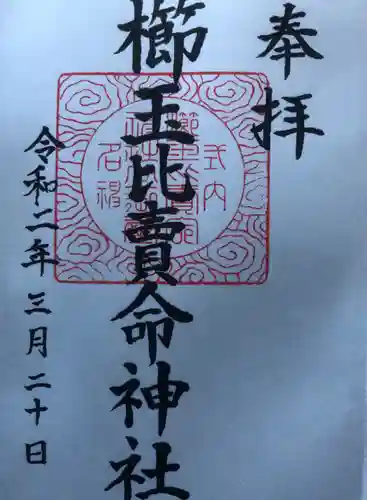 奉拝
櫛玉比賣命神社
令和二年三月二十日
式内
名神